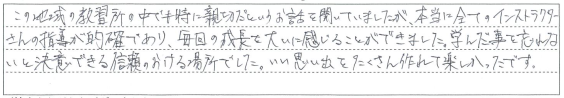 この地域の教習所の中でも特に親切だというお話を聞いていましたが、本当に全てのインストラクター
さんの指導が的確であり、毎回の成長を大いに感じることができました。学んだ事を忘れな
いと決意できる信頼のおける場所でした。いい思い出をたくさん作れて楽しかったです。